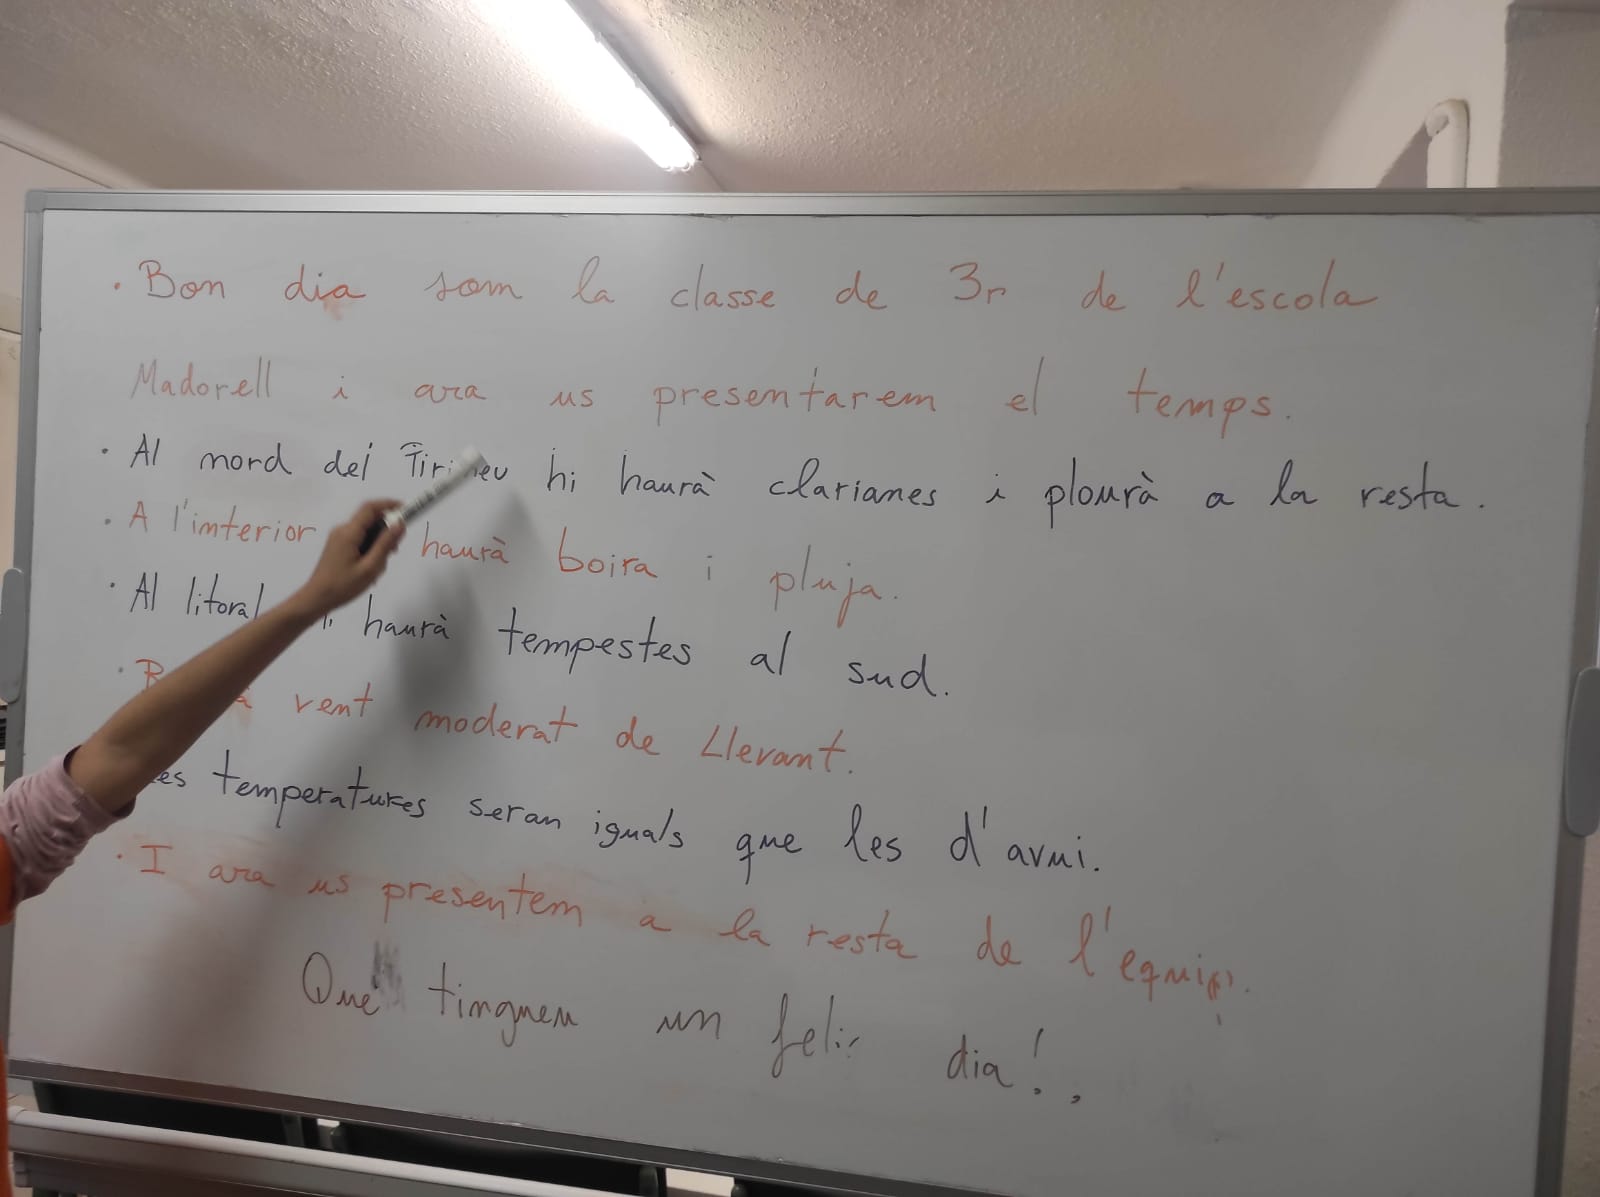 · Bon dia som la classe de 3r de l'escola
Madorell i ara us presentarem el temps.
· Al nord del Pirineu hi haurà clarianes i plourà a la resta.
· A l'interior haurà boira i pluja.
· Al litoral hi haurà tempestes al sud.
· vent moderat de Llevant.
Les temperatures seran iguals que les d'avui.
· I ara us presentem a la resta de l'equip.
Que tingueu un feliç dia!